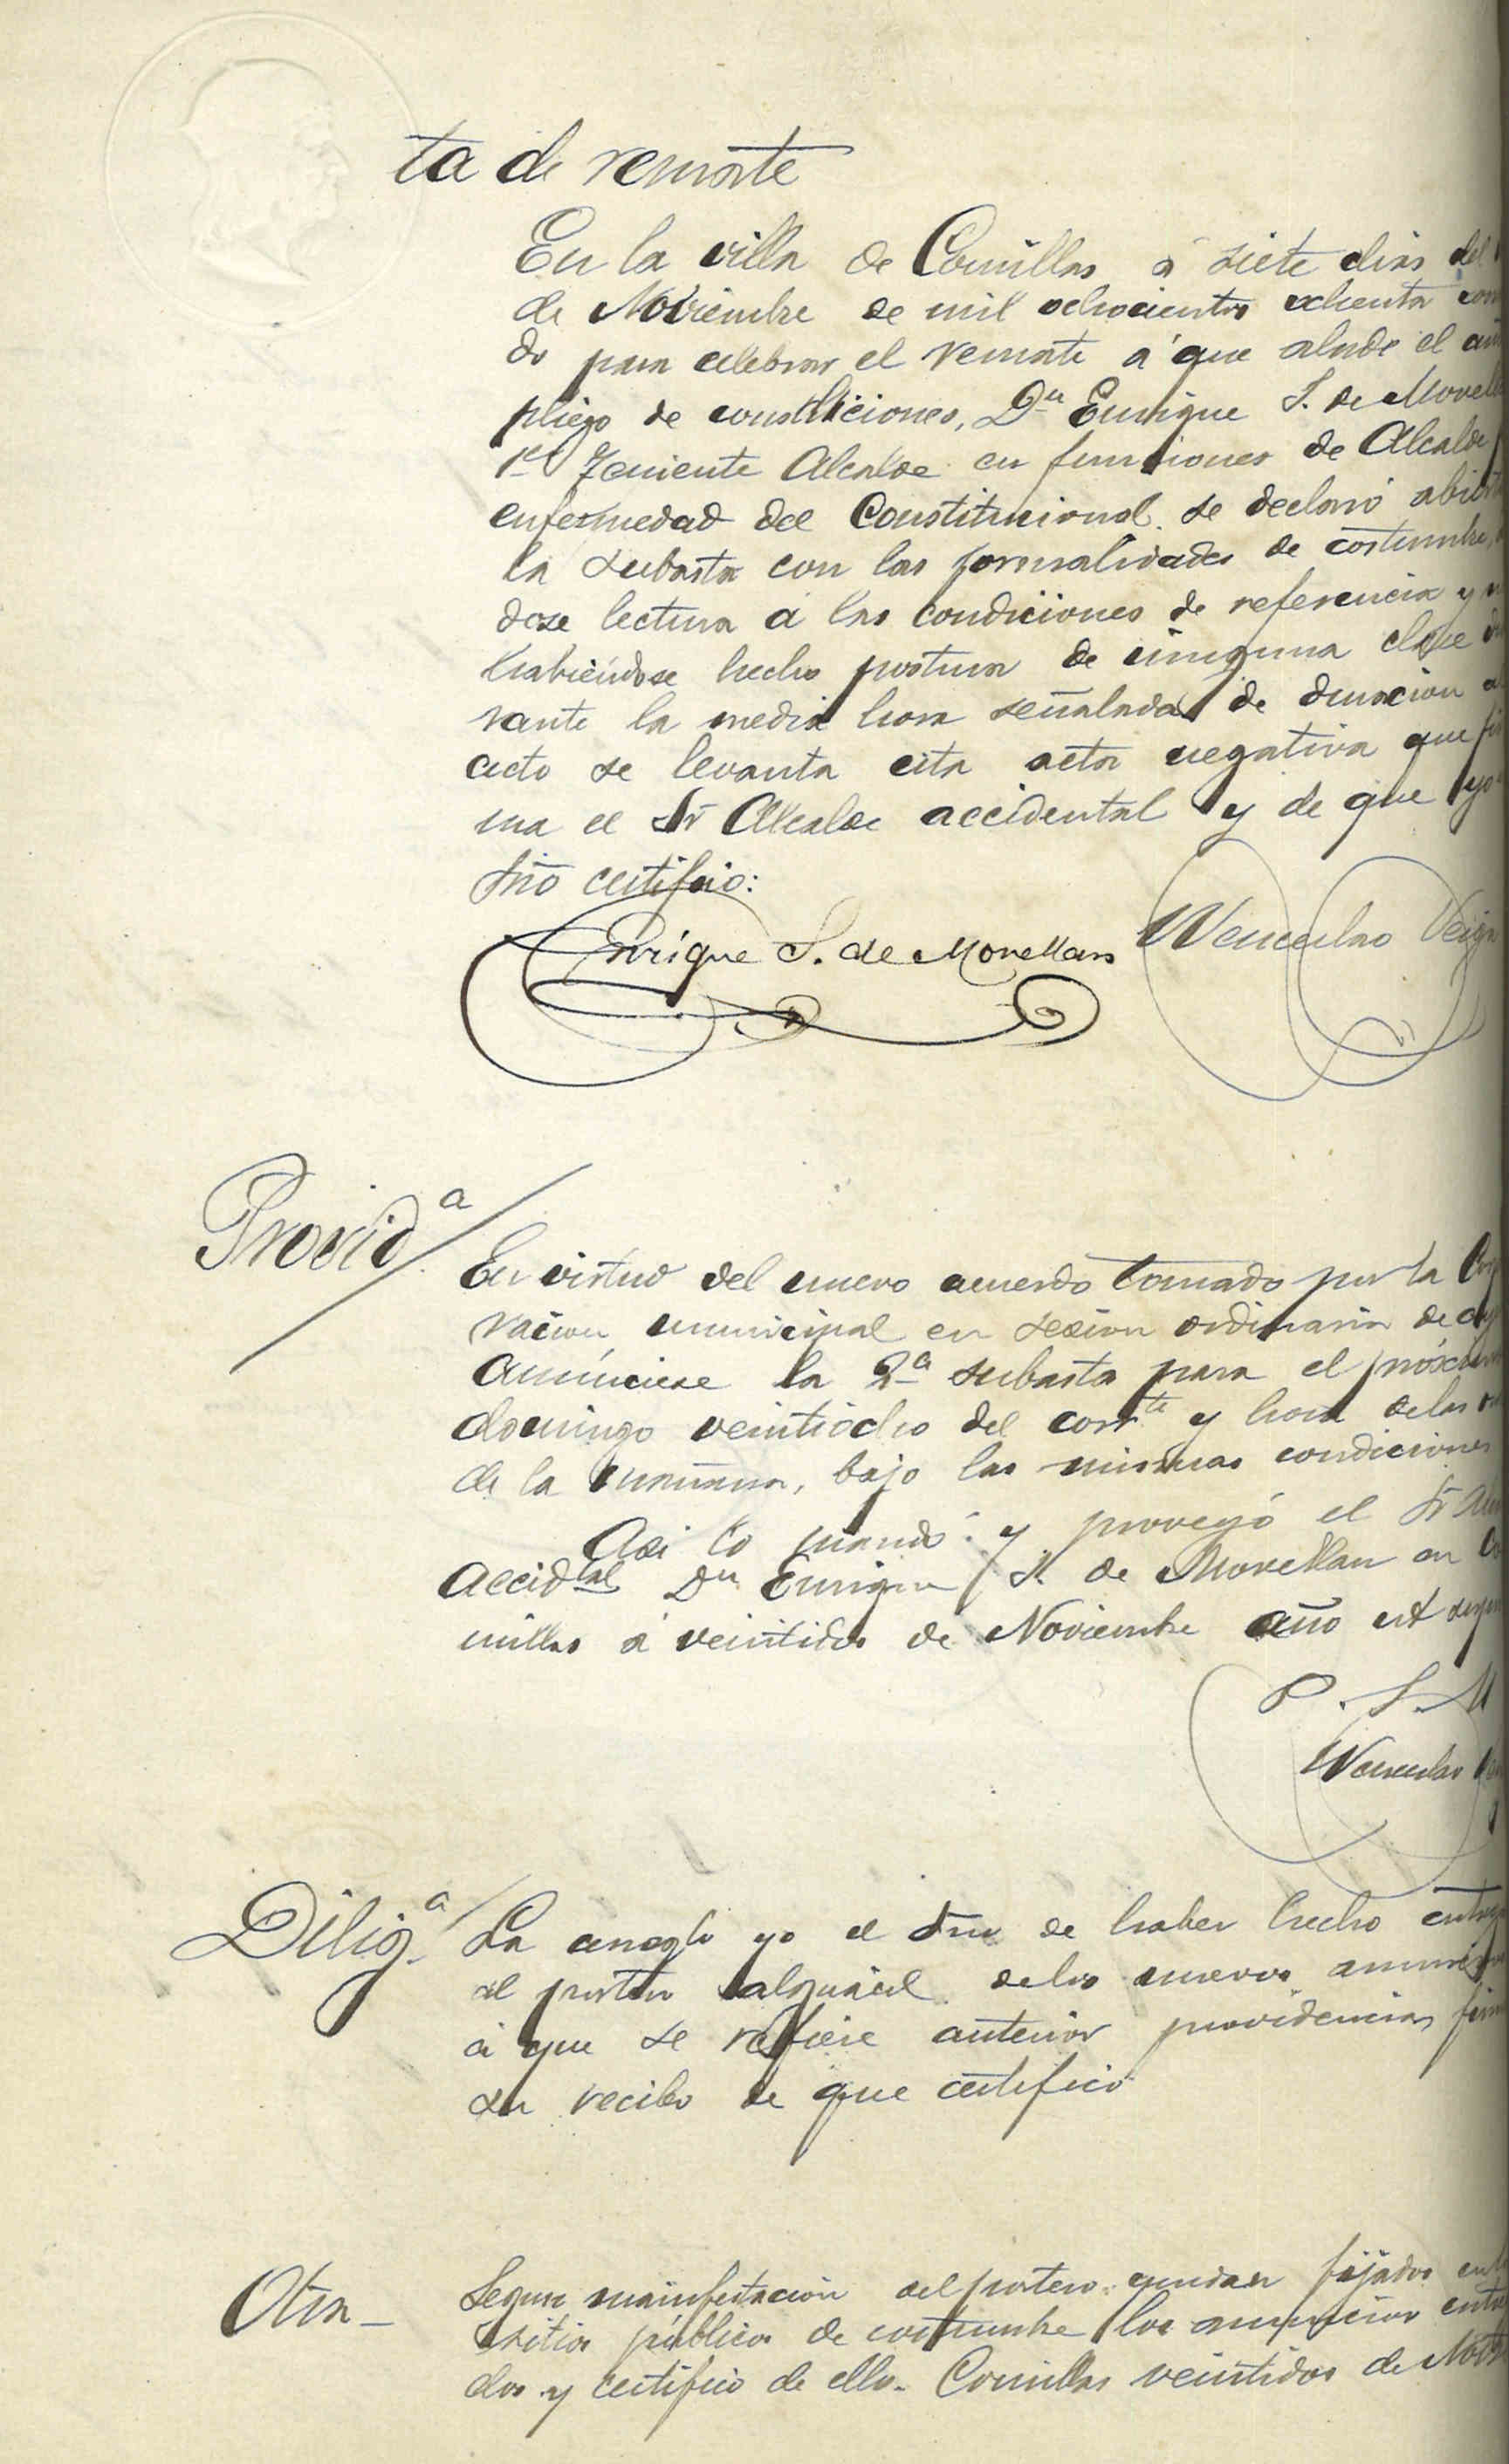 ta de remate
En la villa de Comillas á siete dias del
de Noviembre de mil ochocientos ochenta
do para celebrar el remate á que alude el
pliego de condiciones, Dn Enrique S. de Movell
1er Teniente Alcalde en funciones de Alcalde
enfermedad del Constitucional se declaró abier
la subasta con las formalidades de costumbre,
dose lectura á las condiciones de referencia y
habiéndose hecho postura de ninguna clase
rante la media hora señalada de duracion
acto se levanta esta acta negativa que fir
ma el Sr Alcalde accidental y de que yo
Srio certifico:
Enrique S. de Movellan Wenceslao Veig
Provid.a
En virtud del nuevo acuerdo tomado por la Cor
racion municipal en sesion ordinaria de
anúnciese la 2a subasta para el próximo
domingo veintiocho del corrte y hora delas
de la mañana, bajo las mismas condiciones
Asi lo mandó y proveyó el Sr
Accidtal Dn Enrique S. de Movellan en Co
millas á veintidos de Noviembre año
P. S. M
Wenceslao
Dilig.a La arreglo yo el Srio de haber hecho
al portero alguacil delos nuevos anuncios
á que se refiere anterior providencia,
su recibo de que certifico
Otra - Segun manifestacion del portero quedan fijados en
sitios públicos de costumbre los anuncios
dos y certifico de ello. Comillas veintidos de